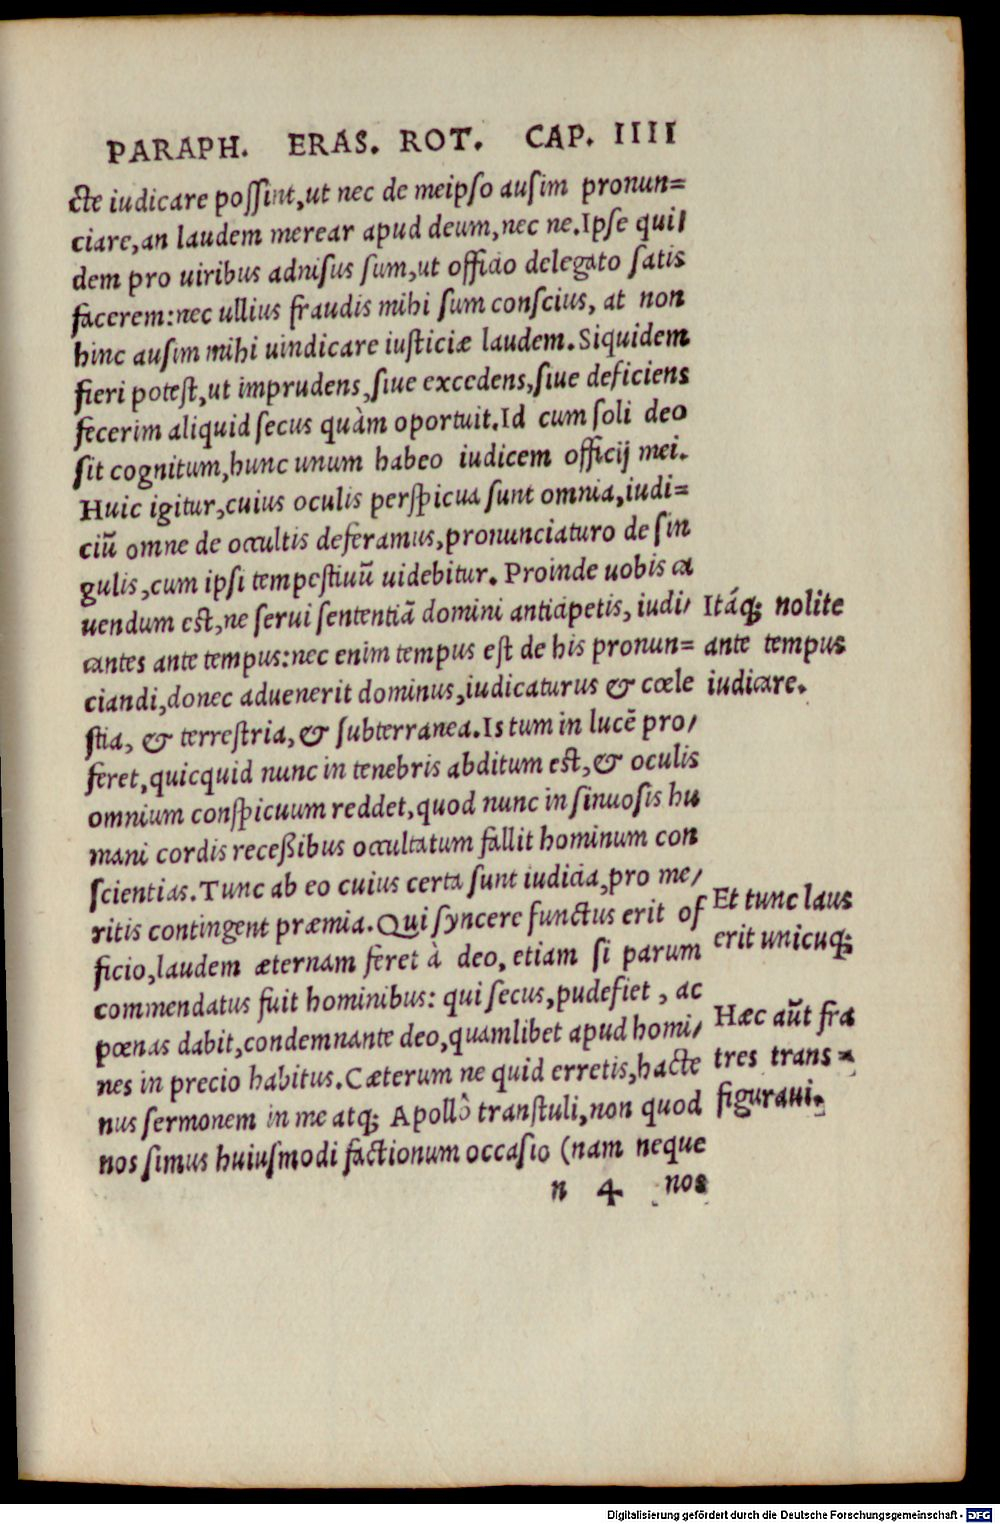 PARAPH. ERAS. ROT. CAP. IIII
cte iudicare possint, ut nec de meipso ausim pronun=
ciare, an laudem merear apud deum, nec ne. Ipse qui/
dem pro uiribus adnisus sum, ut officio delegato satis
facerem: nec ullius fraudis mihi sum conscius, at non
hinc ausim mihi uindicare iusticiæ laudem. Siquidem
fieri potest, ut imprudens, siue excedens, siue deficiens
fecerim aliquid secus quàm oportuit. Id cum soli deo
sit cognitum, hunc unum habeo iudicem officij mei.
Huic igitur, cuius oculis perspicua sunt omnia, iudi=
ciū omne de occultis deferamus, pronunciaturo de sin
gulis, cum ipsi tempestiuū uidebitur. Proinde uobis ca
uendum est, ne serui sententiā domini anticipetis, iudi/
cantes ante tempus: nec enim tempus est de his pronun=
ciandi, donec aduenerit dominus, iudicaturus & cœle
stia, & terrestria, & subterranea. Is tum in lucē pro/
feret, quicquid nunc in tenebris abditum est, & oculis
omnium conspicuum reddet, quod nunc in sinuosis hu
mani cordis receßibus occultatum fallit hominum con
scientias. Tunc ab eo cuius certa sunt iudicia, pro me/
ritis contingent præmia. Qui syncere functus erit of
ficio, laudem æternam feret à deo, etiam si parum
commendatus fuit hominibus: qui secus, pudefiet, ac
pœnas dabit, condemnante deo, quamlibet apud homi/
nes in precio habitus. Cæterum ne quid erretis, hacte
nus sermonem in me atq; Apollô transtuli, non quod
nos simus huiusmodi factionum occasio (nam neque
n 4 nos
Itáq; nolite
ante tempus
iudicare.
Et tunc laus
erit unicuq;
Hæc aūt fra
tres trans=
figuraui.
Digitalisierung gefördert durch die Deutsche Forschungsgemeinschaft - DFG